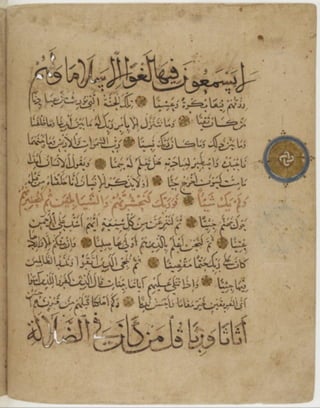 لا يسمعون فيها لغوا إلا سلاما ولهم
رزقهم فيها بكرة وعشيا تلك الجنة التي نورث من عبادنا
من كان تقيا وما نتنزل إلا بأمر ربك له ما بين أيدينا وما خلفنا
وما بين ذلك وما كان ربك نسيا رب السموات والأرض وما بينهما
فاعبده واصطبر لعبادته هل تعلم له سميا ويقول الإنسان أئذا
ما مت لسوف أخرج حيا أولا يذكر الإنسان أنا خلقناه من قبل
ولم يك شيئا فوربك لنحشرنهم والشياطين ثم لنحضرنهم
حول جهنم جثيا ثم لننزعن من كل شيعة أيهم أشد على الرحمن
عتيا ثم لنحن أعلم بالذين هم أولى بها صليا وإن منكم إلا واردها
كان على ربك حتما مقضيا ثم ننجي الذين اتقوا ونذر الظالمين
فيها جثيا وإذا تتلى عليهم آياتنا بينات قال الذين كفروا للذين آمنوا
أي الفريقين خير مقاما وأحسن نديا وكم أهلكنا قبلهم من قرن هم أحسن
أثاثا ورئيا قل من كان في الضلالة